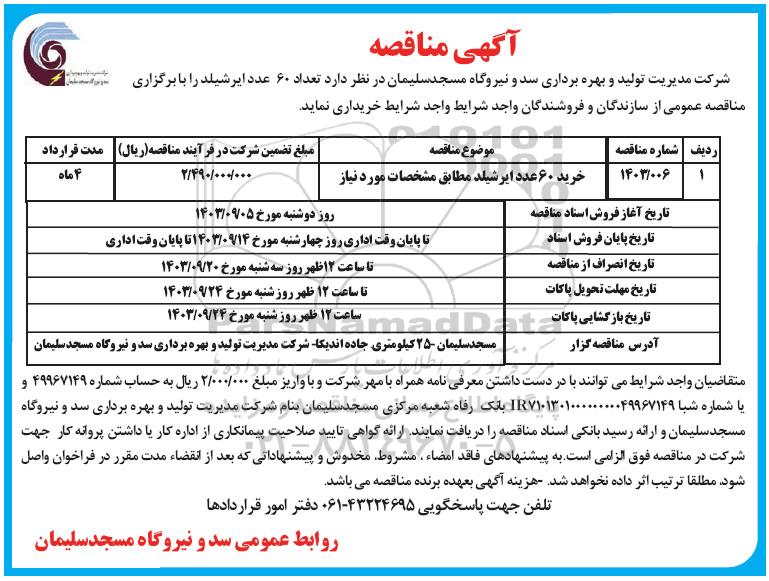 آگهی مناقصه
شرکت مدیریت تولید و بهره برداری سد و نیروگاه مسجدسلیمان در نظر دارد تعداد ۶۰ عدد ایرشیلد را با برگزاری
مناقصه عمومی از سازندگان و فروشندگان واجد شرایط واجد شرایط خریداری نماید.
ردیف شماره مناقصه موضوع مناقصه مبلغ تضمین شرکت در فرآیند مناقصه(ریال) مدت قرارداد
۱ ۱۴۰۳/۰۰۶ خرید ۶۰ عدد ایرشیلد مطابق مشخصات مورد نیاز ۲/۴۹۰/۰۰۰/۰۰۰ ۴ ماه
تاریخ آغاز فروش اسناد مناقصه روز دوشنبه مورخ ۱۴۰۳/۰۹/۰۵
تاریخ پایان فروش اسناد تا پایان وقت اداری روز چهارشنبه مورخ ۱۴۰۳/۰۹/۱۴ تا پایان وقت اداری
تاریخ انصراف از مناقصه تا ساعت ۱۲ظهر روز سه شنبه مورخ ۱۴۰۳/۰۹/۲۰
تاریخ مهلت تحویل پاکات تا ساعت ۱۲ ظهر روز شنبه مورخ ۱۴۰۳/۰۹/۲۴
تاریخ بازگشایی پاکات ساعت ۱۲ ظهر روز شنبه مورخ ۱۴۰۳/۰۹/۲۴
آدرس مناقصه گزار مسجدسلیمان -۲۵کیلومتری جاده اندیکا- شرکت مدیریت تولید و بهره برداری سد و نیروگاه مسجدسلیمان
متقاضیان واجد شرایط می توانند با در دست داشتن معرفی نامه همراه با مهر شرکت و با واریز مبلغ ۲/۰۰۰/۰۰۰ ریال به حساب شماره ۴۹۹۶۷۱۴۹ و
یا شماره شبا IR۷۱۰۱۳۰۱۰۰۰۰۰۰۰۰۰۴۹۹۶۷۱۴۹ بانک رفاه شعبه مرکزی مسجدسلیمان بنام شرکت مدیریت تولید و بهره برداری سد و نیروگاه
مسجدسلیمان و ارائه رسید بانکی اسناد مناقصه را دریافت نمایند. ارائه گواهی تایید صلاحیت پیمانکاری از اداره کار یا داشتن پروانه کار جهت
شرکت در مناقصه فوق الزامی است.به پیشنهادهای فاقد امضاء ، مشروط، مخدوش و پیشنهاداتی که بعد از انقضاء مدت مقرر در فراخوان واصل
شود، مطلقا ترتیب اثر داده نخواهد شد. -هزینه آگهی بعهده برنده مناقصه می باشد.
تلفن جهت پاسخگویی ۴۳۲۲۴۶۹۵-۰۶۱ دفتر امور قراردادها
روابط عمومی سد و نیروگاه مسجدسلیمان
ParsNamadData